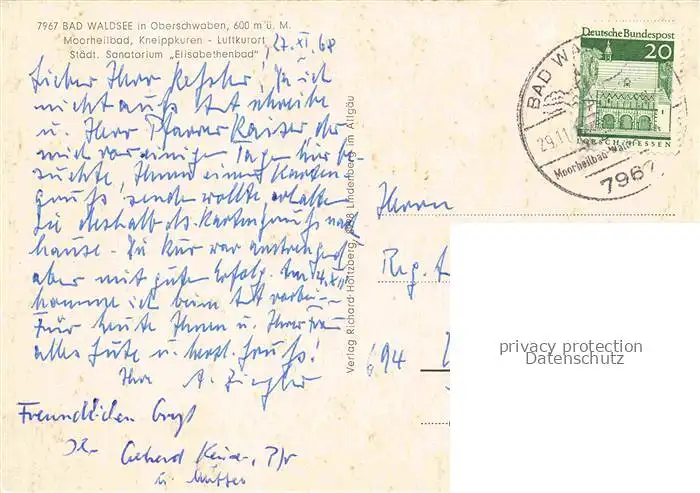 7967 BAD WALDSEE in Oberschwaben, 600 m ü. M.
Moorheilbad, Kneippkuren - Luftkurort
Städt. Sanatorium „Elisabethenbad"
27. XI. 68
Lieber Herr Kessler! Da ich
nicht aufs Amt schreibe
u. Herr Pfarrer Kaiser der
mich vor einigen Tagen hier be-
suchte, Ihnen einen Karten
gruß senden wollte, erhalten
Sie deshalb ds. Kartengruß nach
hause. Die Kur war anstrengend
aber mit gutem Erfolg. Am 4. XII
komme ich beim Amt vorbei -
Für heute Ihnen u. Ihrer Frau
alles Gute u. herzl. Gruß!
Ihr A. Ziegler
Freundlichen Gruß
Ihr Gerhard Kaiser, Pfr
u. Mutter
Verlag Richard Holtzberg, 8998 Lindenberg im Allgäu
Deutsche Bundespost
20
LORSCH/HESSEN
BAD WALDSEE
29.11.
Moorheilbad-
7967
Herrn
Reg.
694
privacy protection
Datenschutz